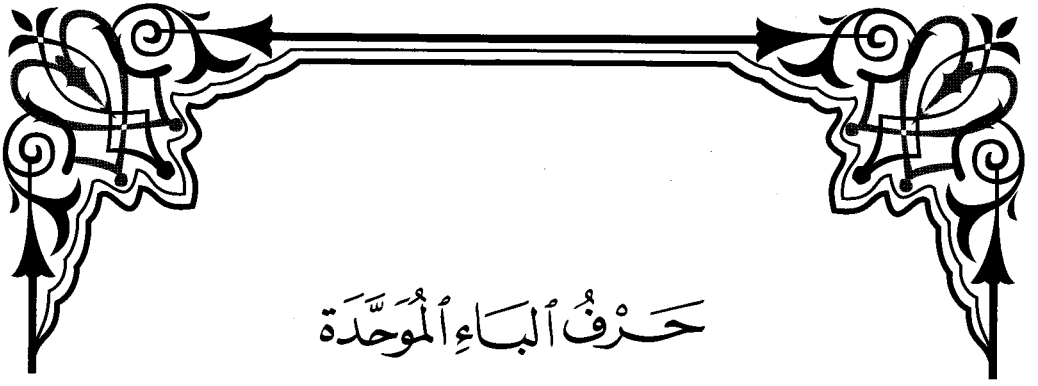 حَرْفُ ٱلبَاءِ ٱلْمُوَحَّدَة